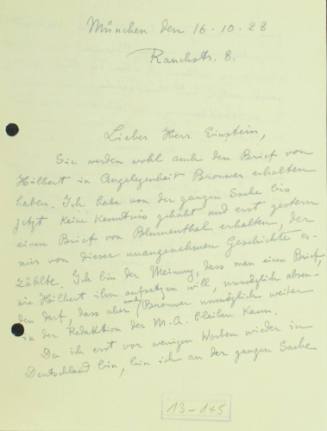 München den 16-10-28
Rauchstr. 8.
Lieber Herr Einstein,
Sie werden wohl auch den Brief von
Hilbert in Angelegenheit Brouwer erhalten
haben. Ich habe von der ganzen Sache bis
jetzt keine Kenntnis gehabt und erst gestern
einen Brief von Blumenthal erhalten, der
mir von dieser unangenehmen Geschichte er-
zählte. Ich bin der Meinung, dass man einen Brief,
wie Hilbert ihm aufsetzen will, unmöglich absen-
den darf, dass aber auch Brouwer unmöglich weiter
in der Redaktion des M.A. bleiben kann.
Da ich erst vor wenigen Wochen wieder in
Deutschland bin, bin ich an der ganzen Sache
13-145